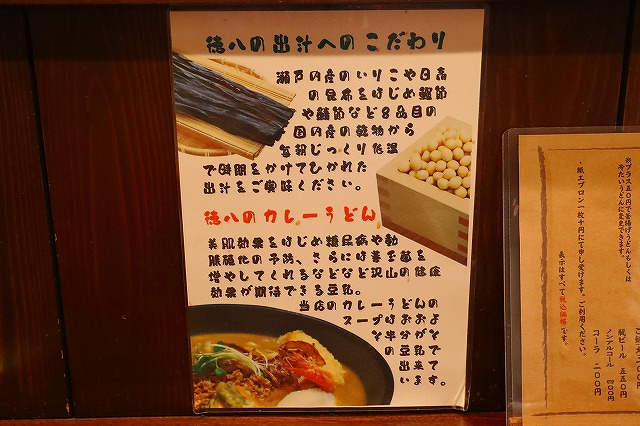 徳八の出汁へのこだわり
瀬戸内産のいりこや日高
の昆布をはじめ鰹節
や鯖節など８品目の
国内産の乾物から
毎朝じっくり低温
で時間をかけてひかれた
出汁をご賞味ください。
徳八のカレーうどん
美肌効果をはじめ糖尿病や動
脈硬化の予防、さらには善玉菌を
増やしてくれるなどなど沢山の健康
効果が期待できる豆乳。
当店のカレーうどんの
スープはおおよ
そ半分がそ
の豆乳で
出来て
います。
※プラス五〇円で釜揚げうどんもしくは
冷たいうどんに変更できます。
・紙エプロン一枚十円にて申し受けます。ご利用ください。
表示はすべて税込価格です。
瓶ビール 五五〇円
ノンアルコール 四〇〇円
コーラ 二〇〇円